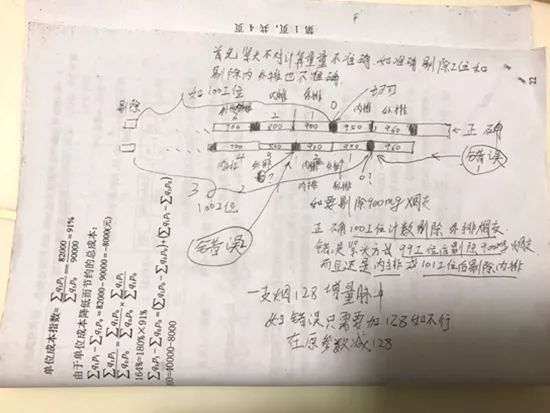 第 1 页，共 4 页
22
首先紧头不对计算量量不准确，如准确剔除工位和
剔除内外排也不准确
如100工位
剔除
内排 外排 0 内排 外排
2 1
700 800 900 950 960
正确
700 800 900 950 960
错误
内排 外排 内排 外排
3 2 1 0?
100工位
错误2
如要剔除900mg烟支
正确100工位计数剔除外排烟支
错误紧头方式 99工位后剔除900mg烟支
而且还是内排或101工位后剔除内排
一支烟128增量脉冲
如错误只需要加128如不行
在原参数减128
单位成本指数=∑q₁p₁/∑q₁p₀=82000/90000=91%
由于单位成本降低而节约的总成本：
∑q₁p₁−∑q₁p₀=82000−90000=−8000(元)
∑q₁p₁/∑q₀p₀=∑q₁p₀/∑q₀p₀×∑q₁p₁/∑q₁p₀
164%=180%×91%
∑q₁p₁−∑q₀p₀=(∑q₁p₀−∑q₀p₀)+(∑q₁p₁−∑q₁p₀)
00=40000−8000